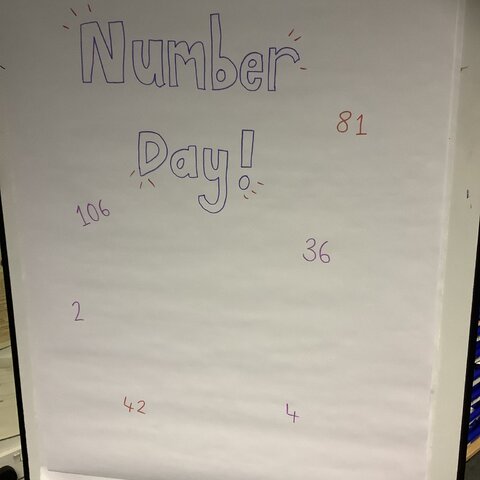 Number
Day!
81
106
36
2
42
4